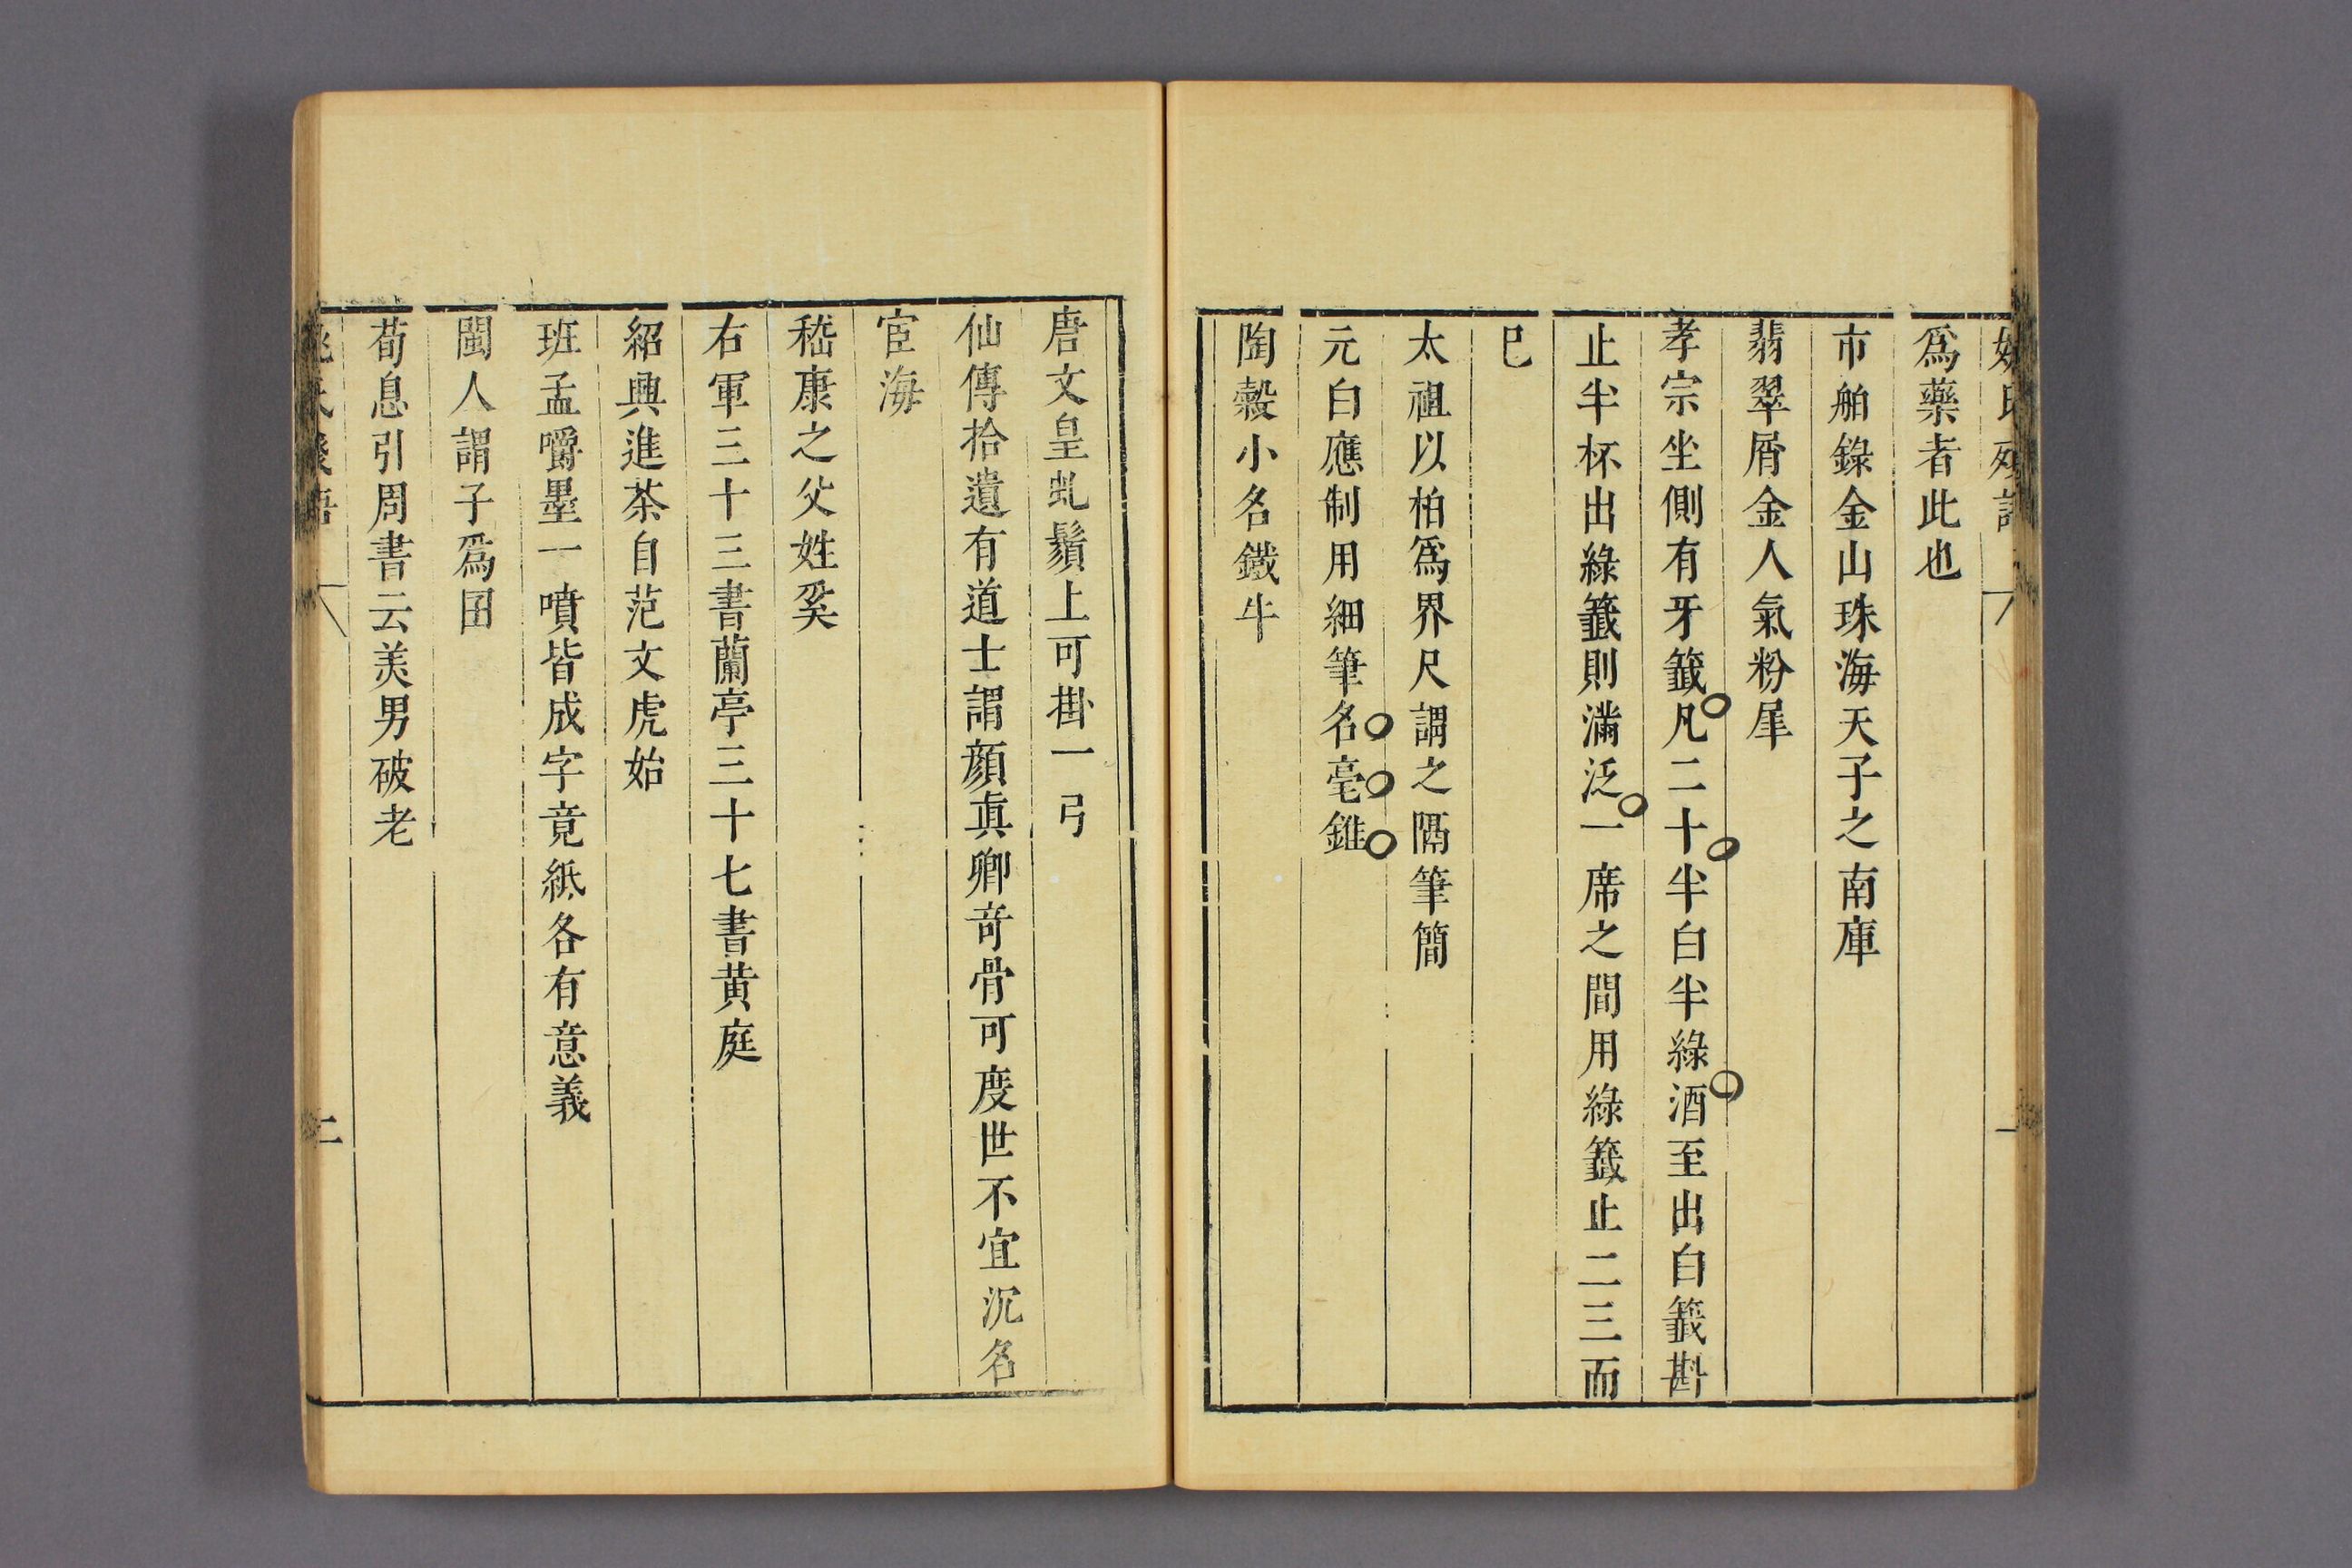 爲藥者此也
市舶錄金山珠海天子之南庫
翡翠屑金人氣粉犀
孝宗坐側有牙籤凡二十半白半綠酒至出白籤斟
止半杯出綠籤則滿泛一席之間用綠籤止二三而
巳
太祖以柏爲界尺謂之隔筆簡
元白應制用細筆名毫錐
陶穀小名鐵牛
唐文皇虬鬚上可掛一弓
仙傳拾遺有道士謂顔眞卿奇骨可度世不宜沉名
宦海
嵇康之父姓奚
右軍三十三書蘭亭三十七書黄庭
紹興進茶自范文虎始
班孟嚼墨一噴皆成字竟紙各有意義
閩人謂子爲囝
荀息引周書云美男破老
二